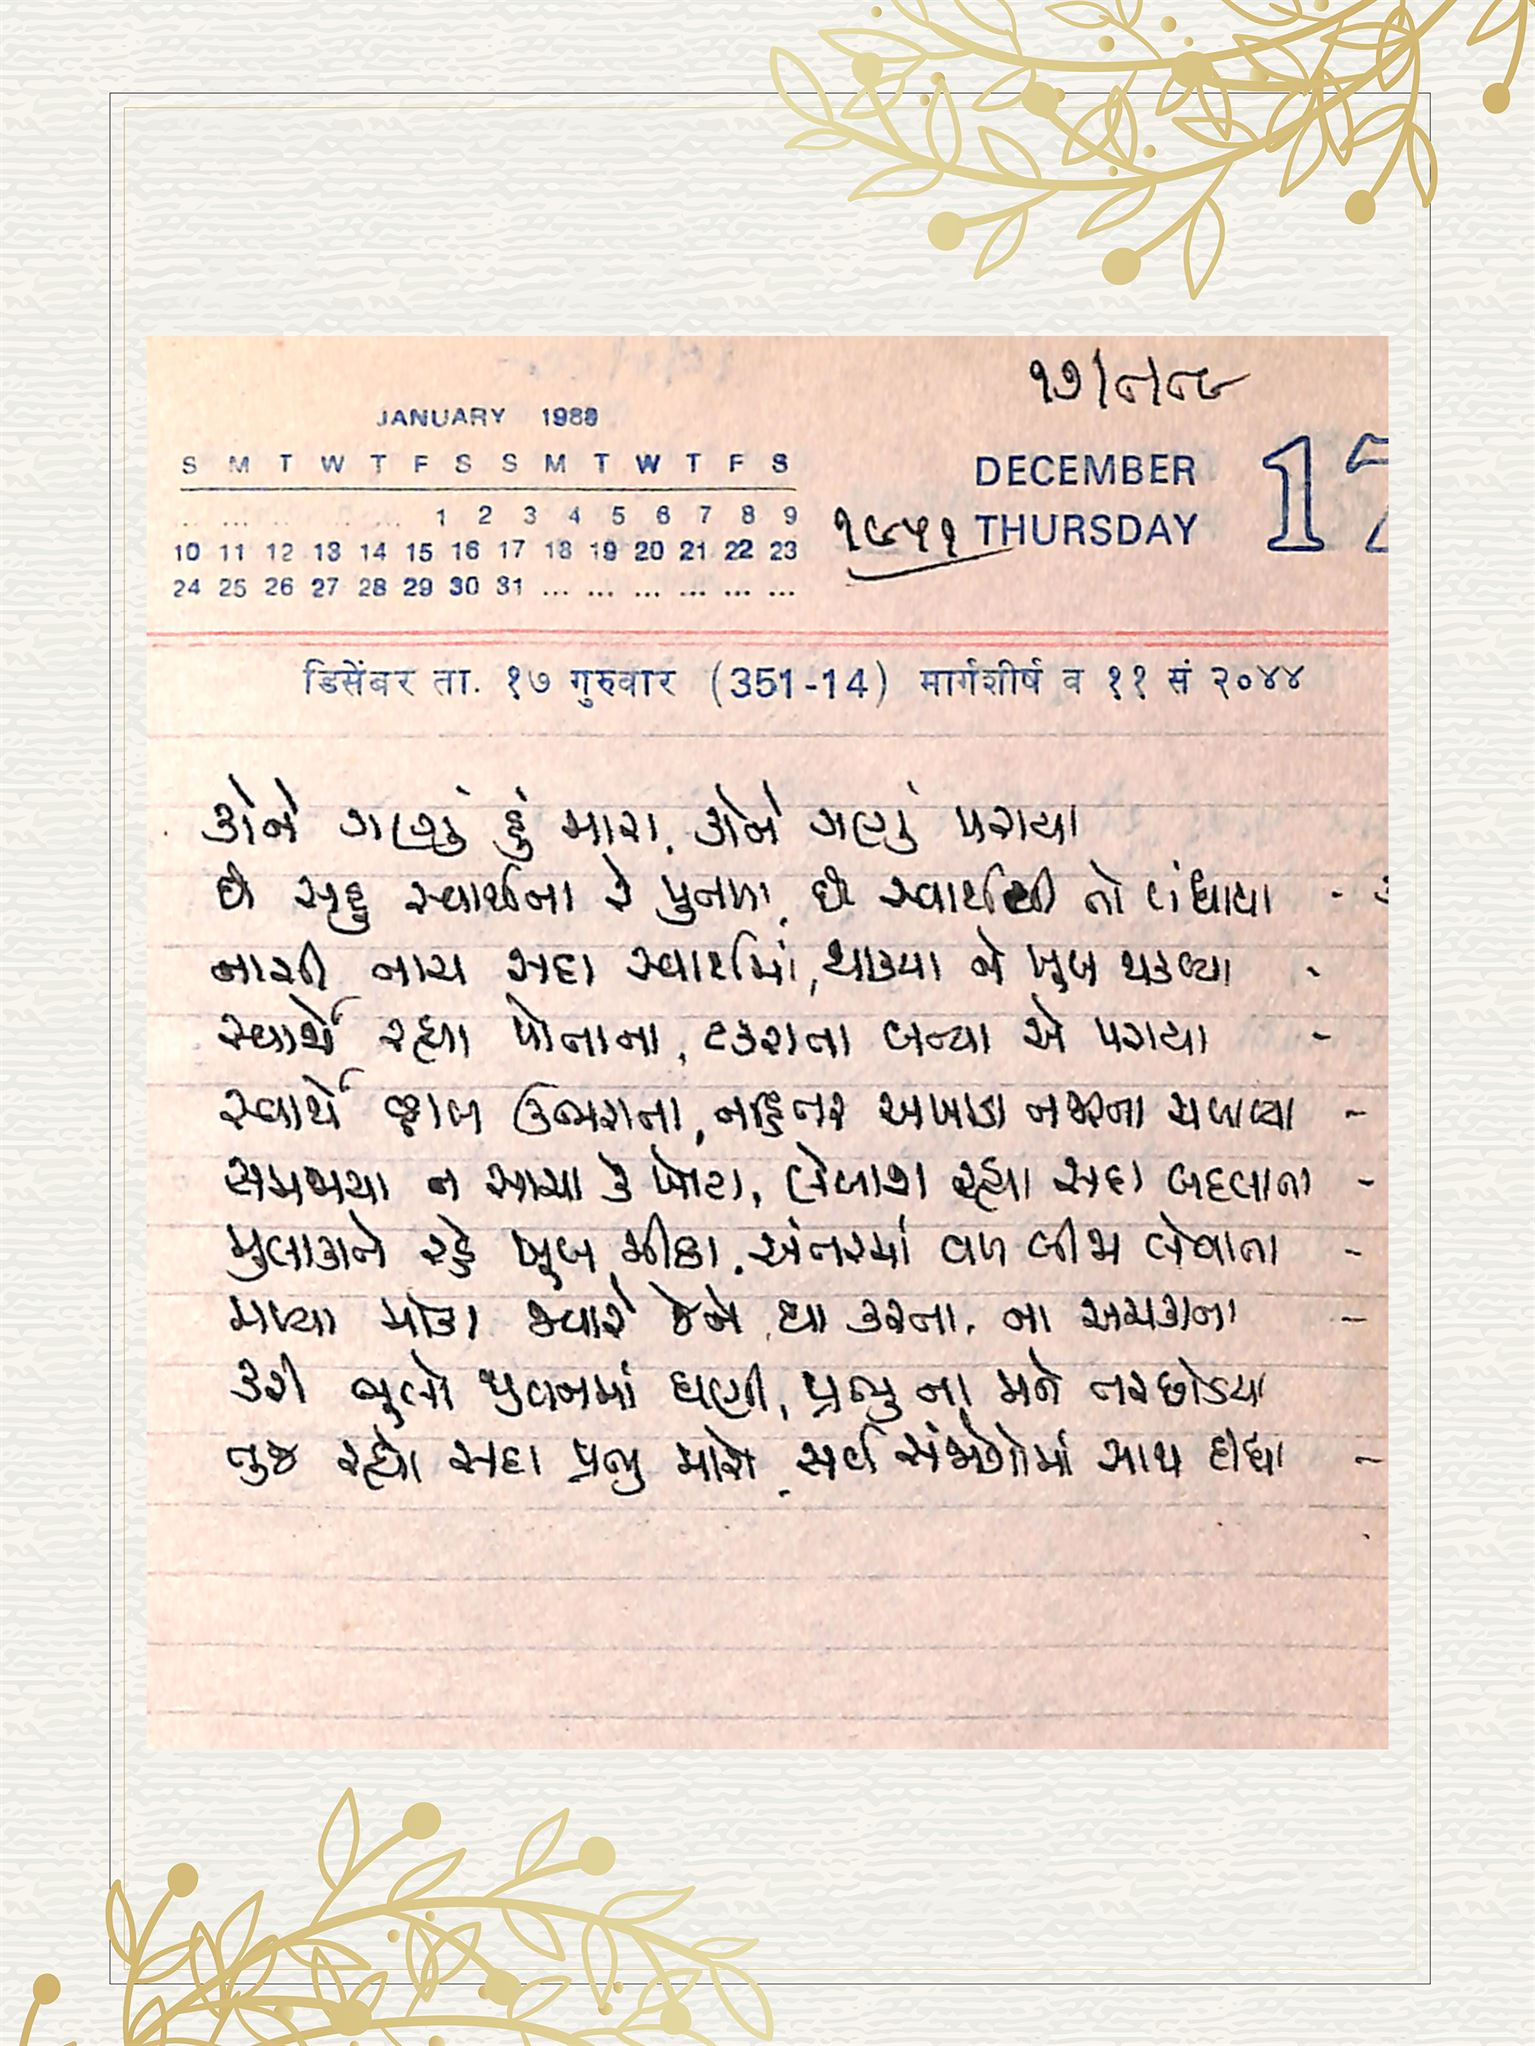 ૧૭/૮/૮૯
JANUARY 1988
S M T W T F S S M T W T F S
... ... ... ... ... 1 2 3 4 5 6 7 8 9
10 11 12 13 14 15 16 17 18 19 20 21 22 23
24 25 26 27 28 29 30 31 ... ... ... ... ... ...
DECEMBER 17
૧૯૫૧ THURSDAY
डिसेंबर ता. १७ गुरुवार (351-14) मार्गशीर्ष व ११ सं २०४४
કોને ગણું હું મારા, કોને ગણું પરાયા
છે સહુ સ્વાર્થના રે પુતળા, છે સ્વાર્થથી તો બંધાયા -
નાચી નાચ સદા સ્વાર્થમાં, થાક્યા ને ખૂબ થકવ્યા -
સ્વાર્થે રહ્યા પોતાના, ટકરાતા બન્યા એ પરાયા -
સ્વાર્થે વ્હાલ ઉભરાતા, નહિતર અખાડા નજરના ચળાવ્યા -
સમજાયા ન સાચા કે ખોટા, લેબાશ રહ્યા સદા બદલાતા -
મુલાકાતે રહે ખૂબ મીઠા, અંતરમાં વળ બીજા લેવાતા -
મળ્યા મોકા જ્યારે જેને, ઘા કરતા, ના અચકાતા -
કરી ભૂલો જીવનમાં ઘણી, પ્રભુ ના મને તરછોડયા
તુજ રહ્યો સદા પ્રભુ મારો, સર્વ સંજોગોમાં સાથ દીધા -